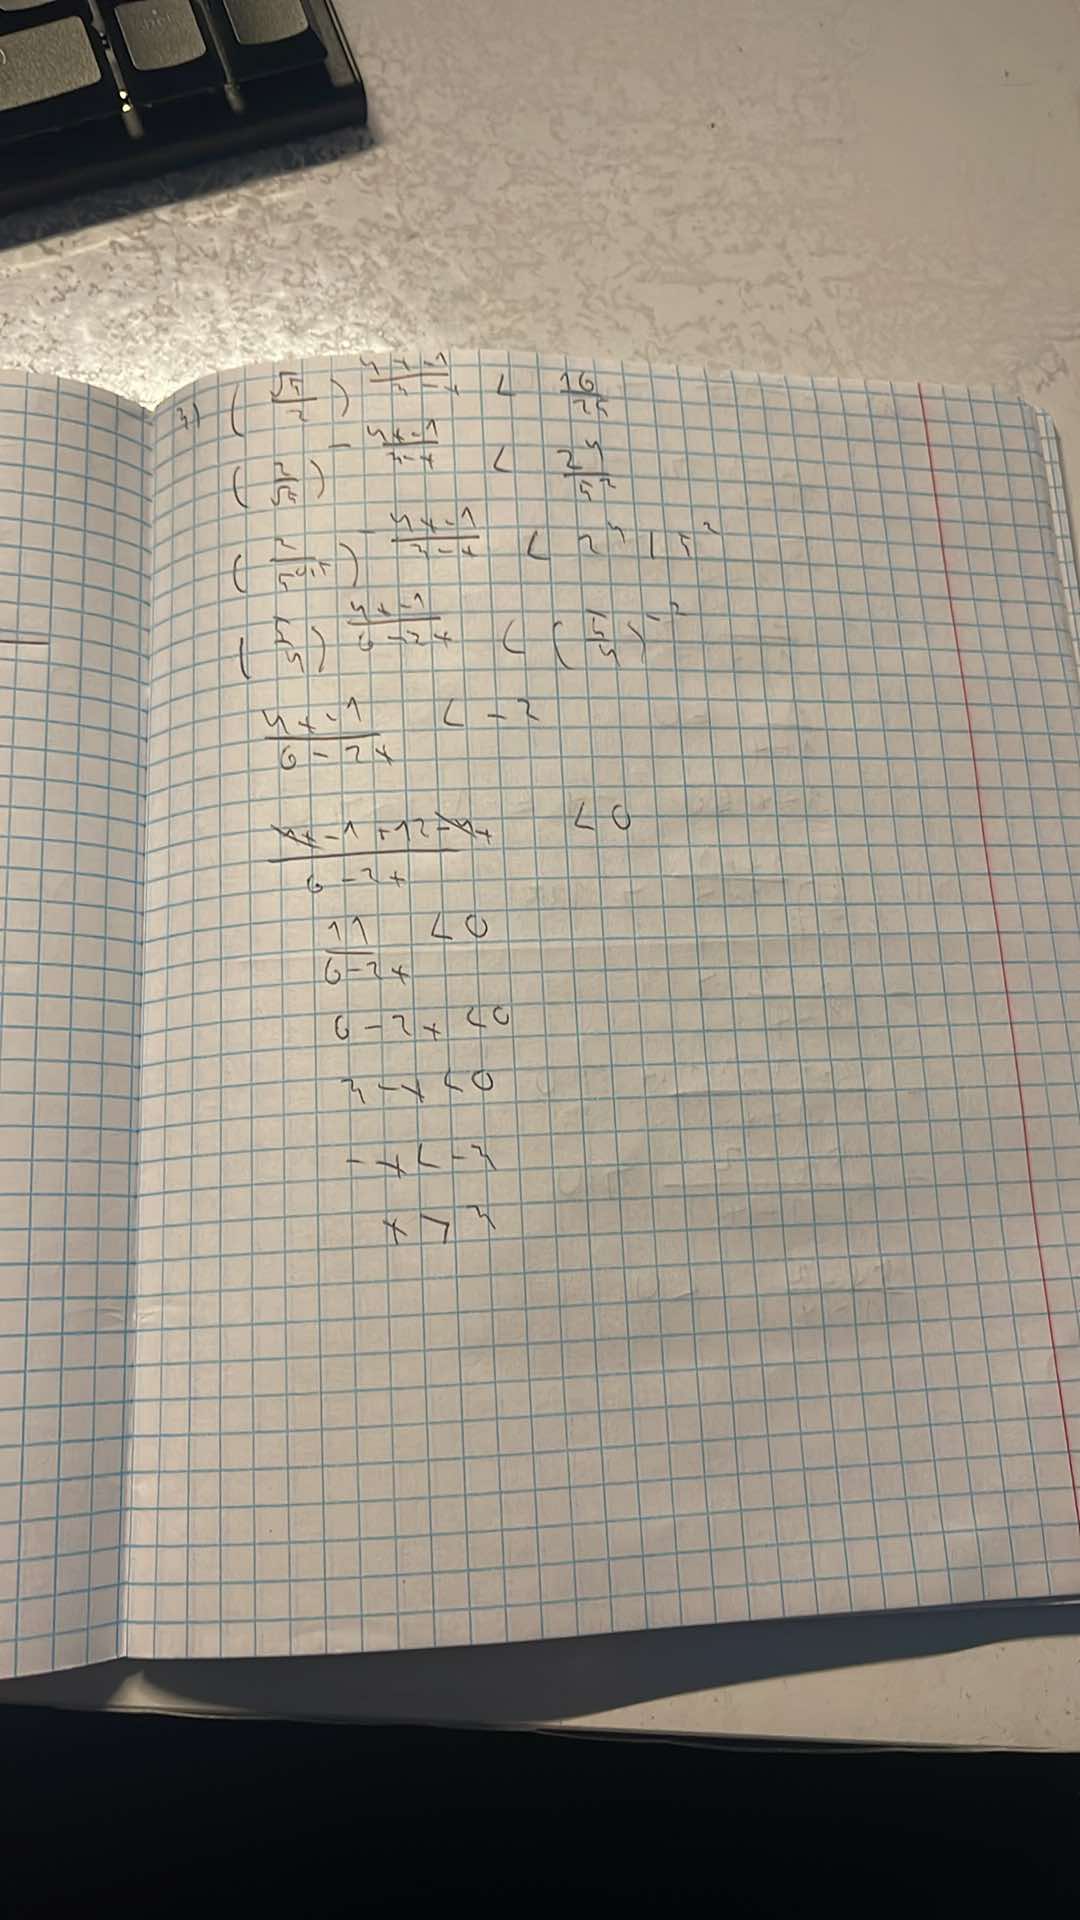 3) (√5/2)^((4x-1)/(3-x)) < 16/25
(2/√5)^(-(4x-1)/(3-x)) < 2^4/5^2
(2/5^0,5)^(-(4x-1)/(3-x)) < 2^4/5^2
(5/4)^((4x-1)/(6-2x)) < (5/4)^-2
(4x-1)/(6-2x) < -2
(4x-1+12-4x)/(6-2x) < 0
11/(6-2x) < 0
6-2x < 0
3-x < 0
-x < -3
x > 3